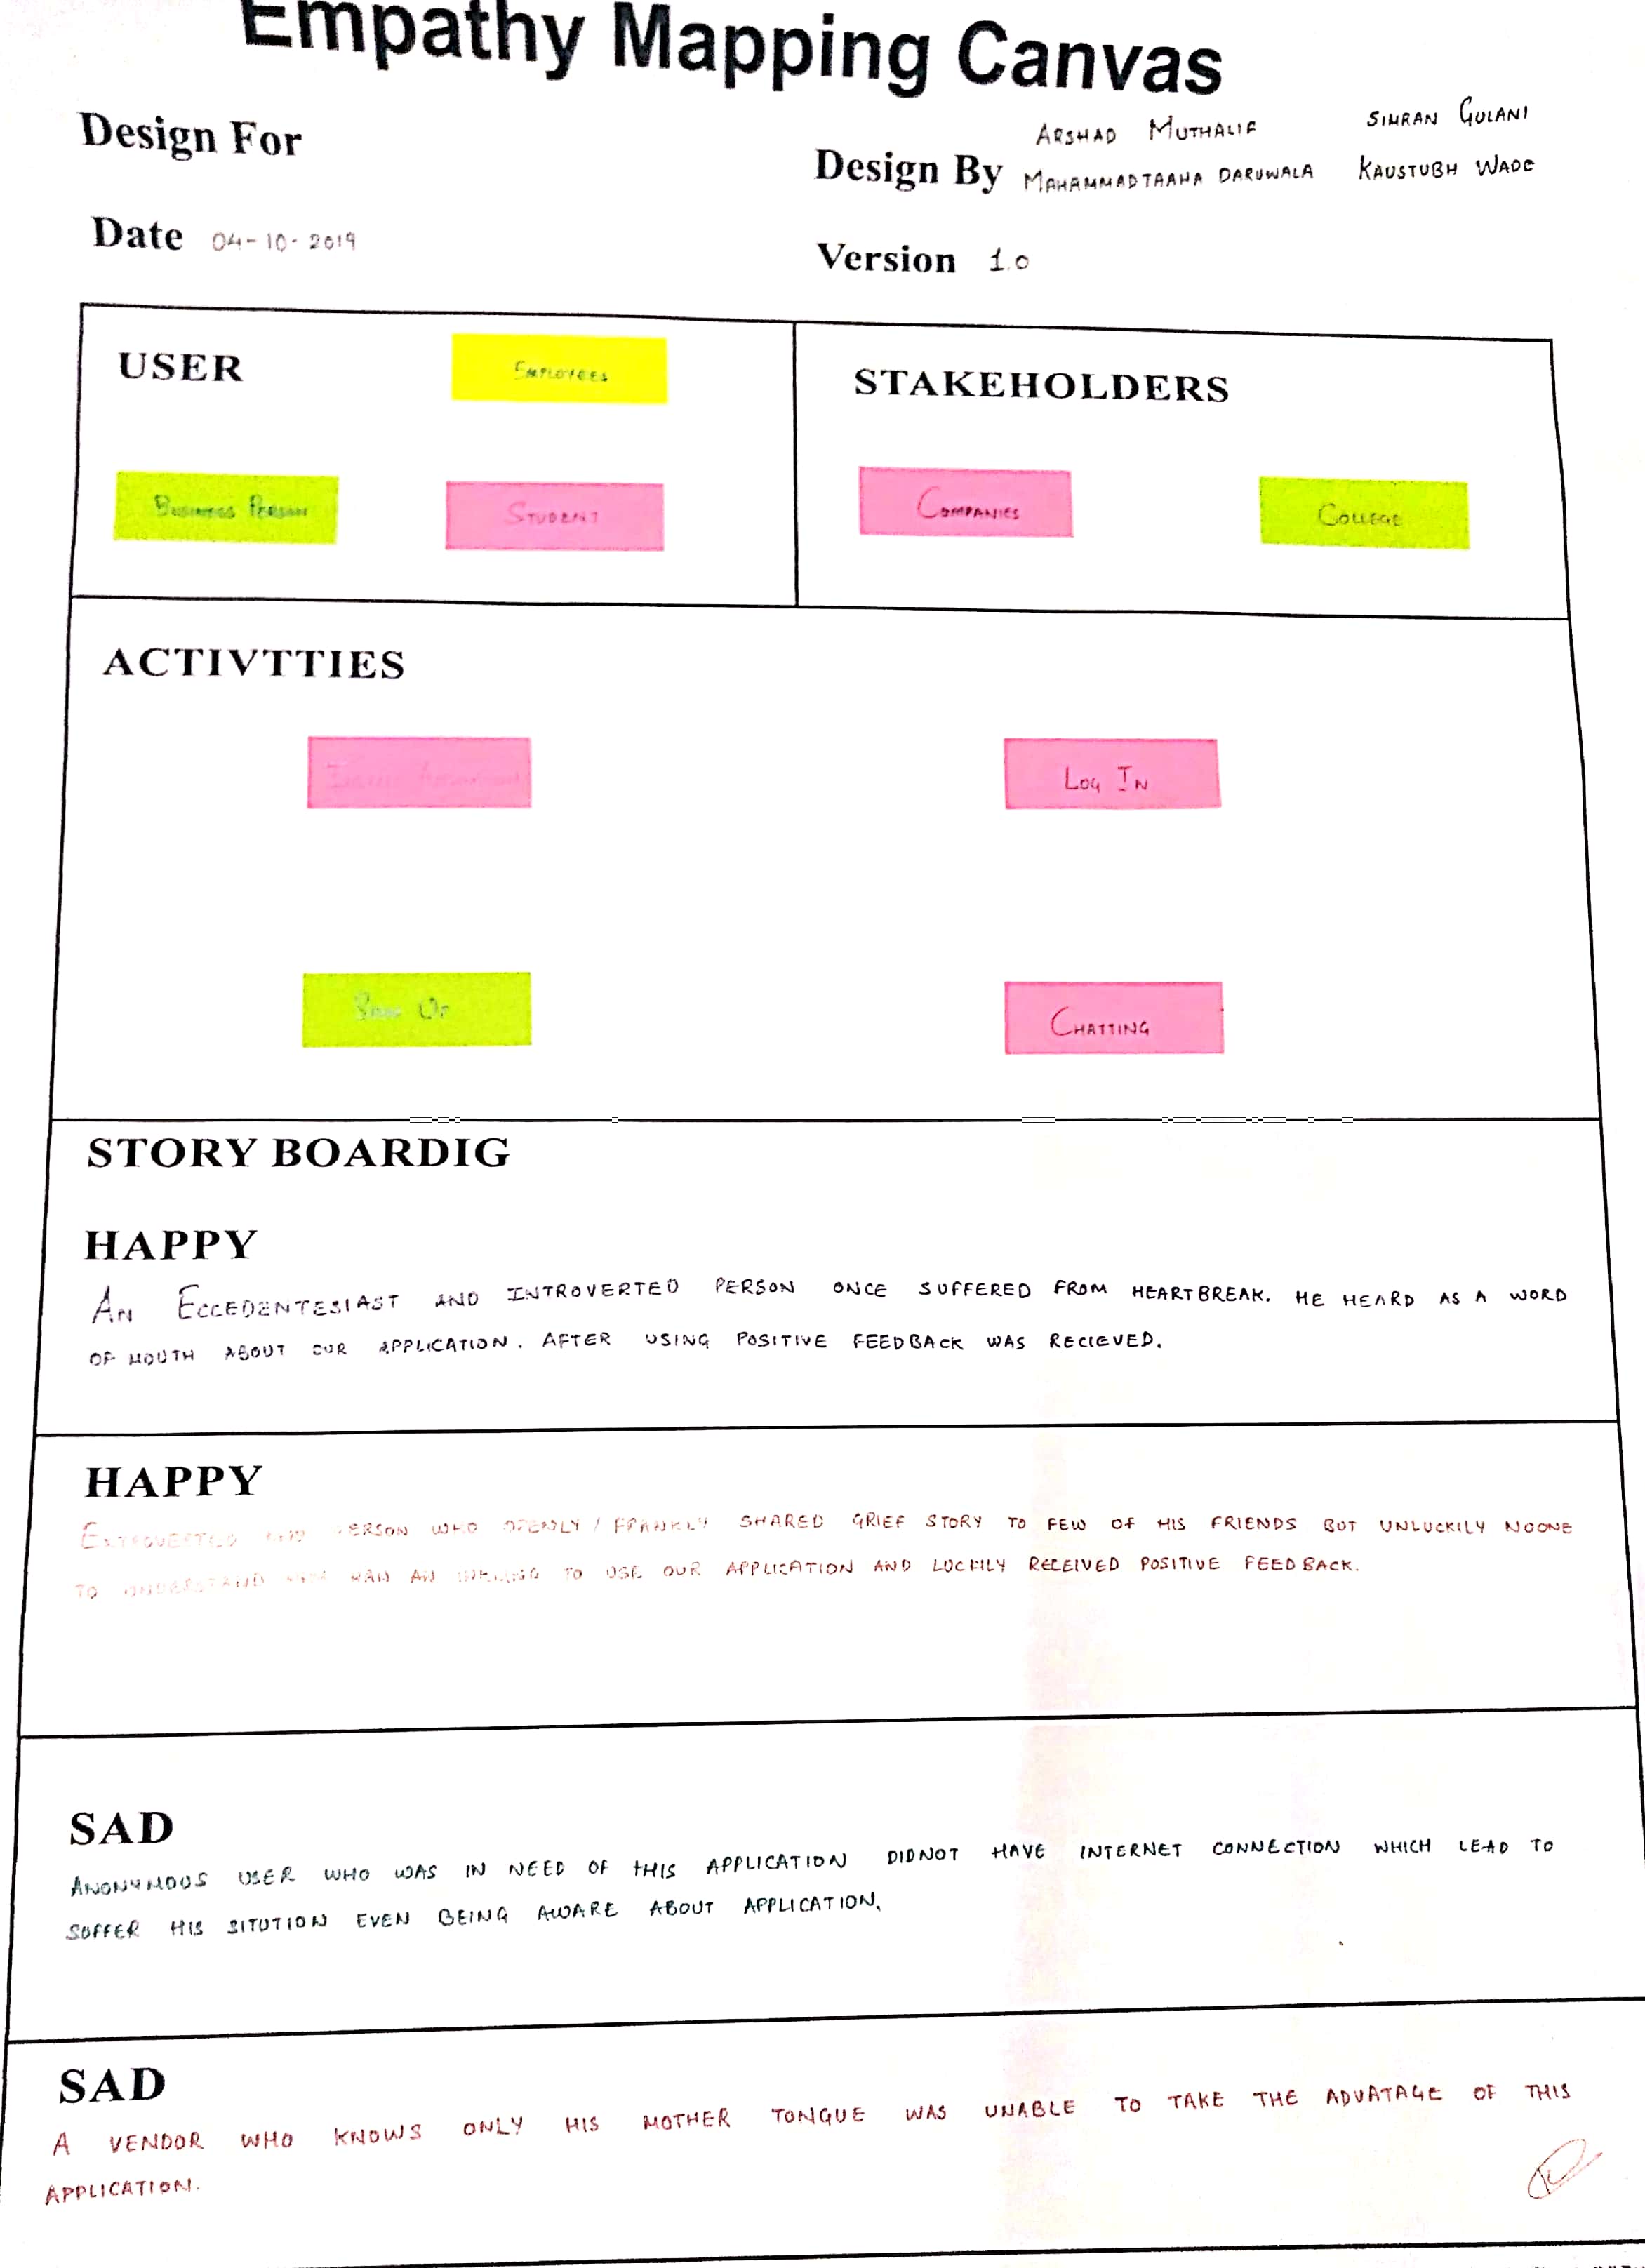 Empathy Mapping Canvas
Design For
Design By ARSHAD MUTHALIF SIMRAN GULANI
MAHAMMADTAAHA DARUWALA KAUSTUBH WADE
Date 04-10-2019
Version 1.0
USER
EMPLOYEES
BUSINESS PERSON
STUDENT
STAKEHOLDERS
COMPANIES
COLLEGE
ACTIVTTIES
LOG IN
SIGN UP
CHATTING
STORY BOARDIG
HAPPY
AN ECCEDENTESIAST AND INTROVERTED PERSON ONCE SUFFERED FROM HEARTBREAK. HE HEARD AS A WORD
OF MOUTH ABOUT OUR APPLICATION. AFTER USING POSITIVE FEEDBACK WAS RECIEVED.
HAPPY
EXTROVERTED PERSON WHO OPENLY / FRANKLY SHARED GRIEF STORY TO FEW OF HIS FRIENDS BUT UNLUCKILY NOONE
TO UNDERSTAND HAD AN INKLING TO USE OUR APPLICATION AND LUCKILY RECEIVED POSITIVE FEEDBACK.
SAD
ANONYMOUS USER WHO WAS IN NEED OF THIS APPLICATION DIDNOT HAVE INTERNET CONNECTION WHICH LEAD TO
SUFFER HIS SITUTION EVEN BEING AWARE ABOUT APPLICATION.
SAD
A VENDOR WHO KNOWS ONLY HIS MOTHER TONGUE WAS UNABLE TO TAKE THE ADVATAGE OF THIS
APPLICATION.